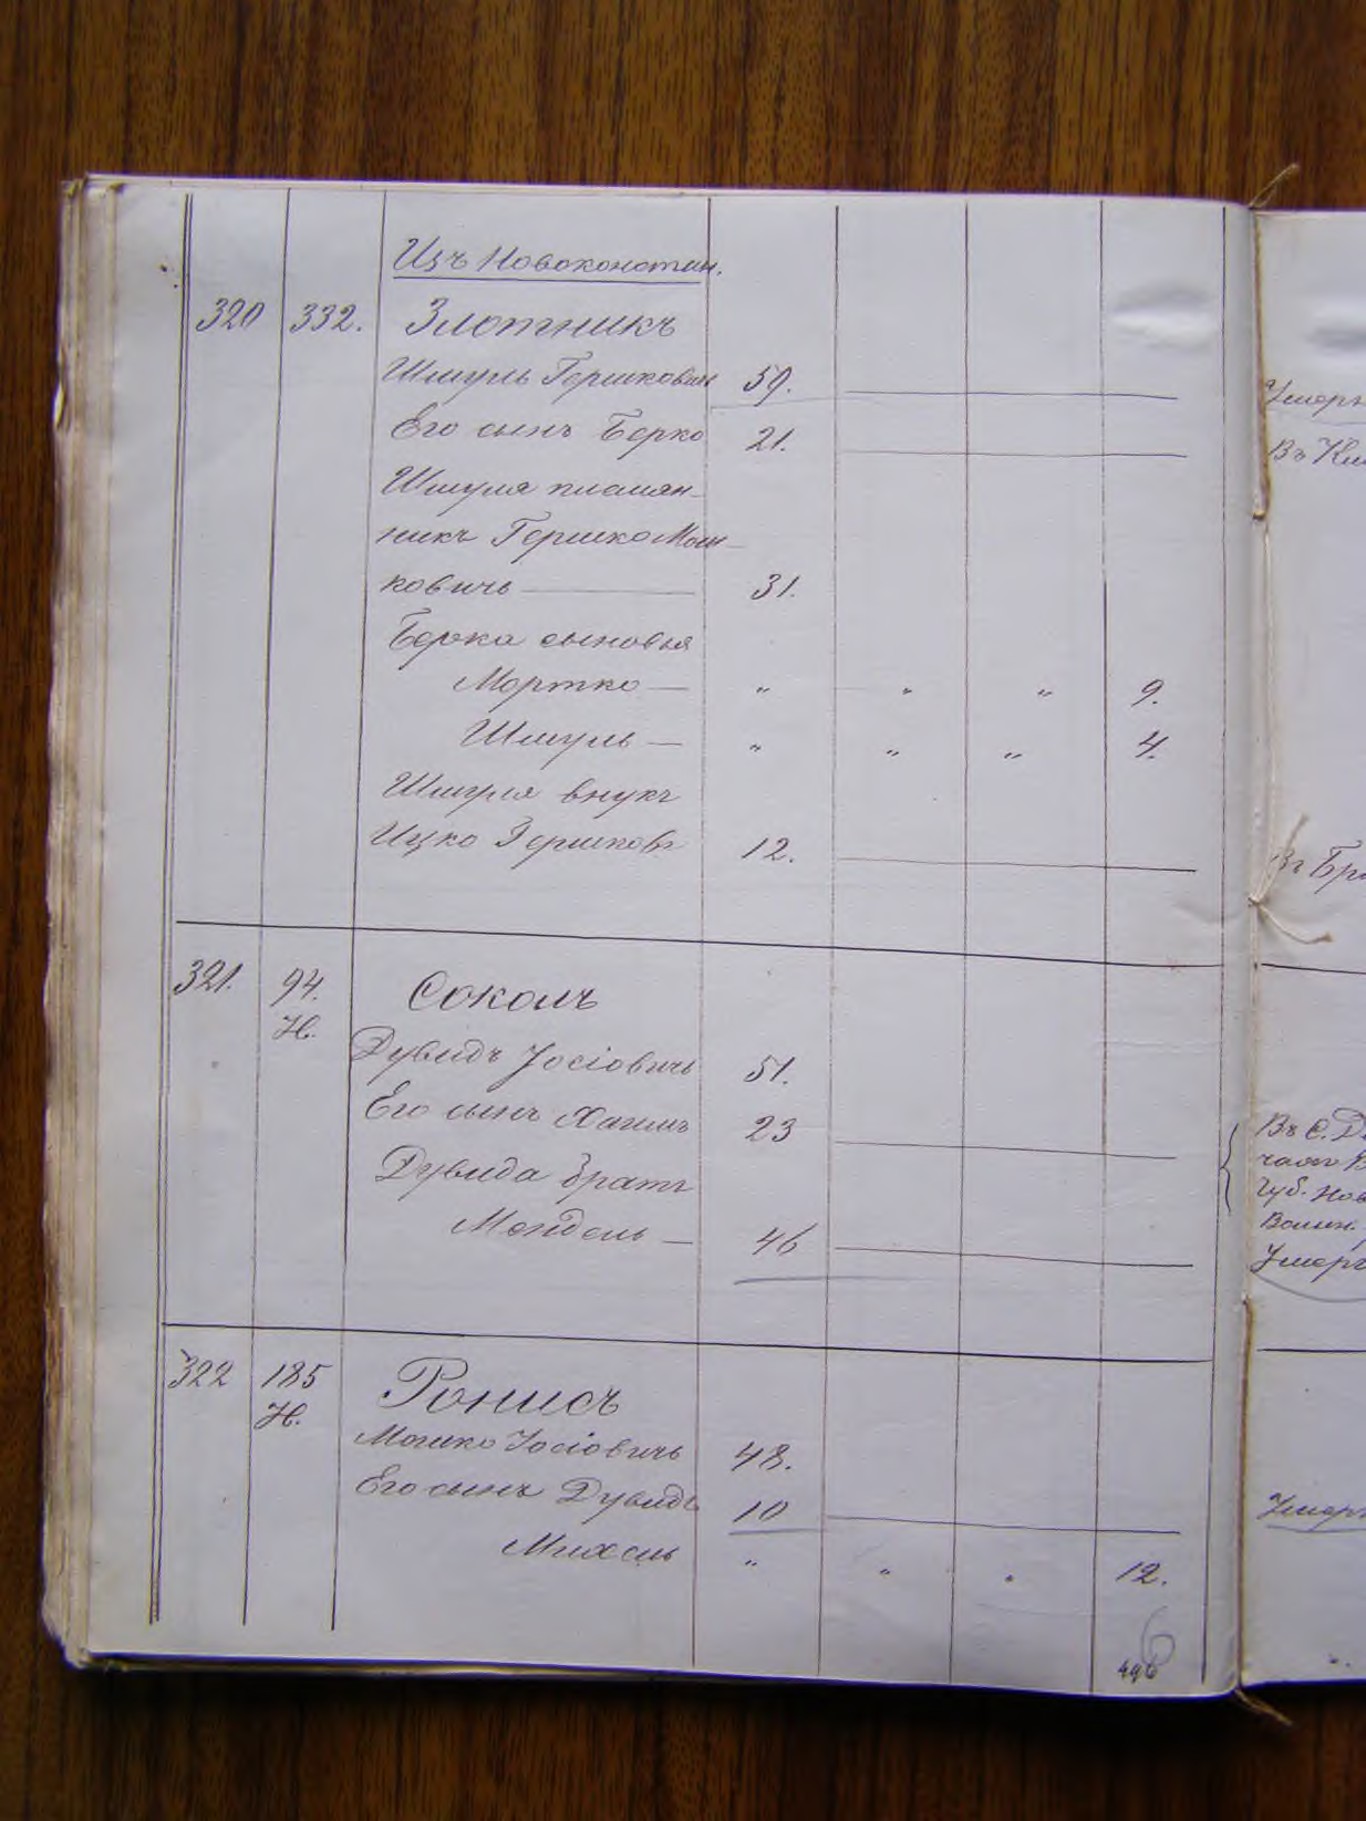 Изъ Новоконстан.
320 332. Злотникъ
Шмуль Гершкович 59.
Его сынъ Берко 21.
Шмуля племян-
никъ Гершко Мош-
ковичъ — 31.
Берка сыновья
Мортко — „ „ „ 9.
Шмуль — „ „ „ 4.
Шмуля внукъ
Ицко Гершковъ 12.
321. 94. Соколъ
Н.
Дувидъ Іосіовичъ 51.
Его сынъ Хаимъ 23
Дувида братъ
Мендель — 46
322 185 Ронисъ
Н.
Мошко Іосіовичъ 48.
Его сынъ Дувидъ 10
Михель „ „ „ 12.
6
Умеръ
Въ
Въ
Въ С. Д.
Губ. Нов
Волын.
Умеръ
Умеръ